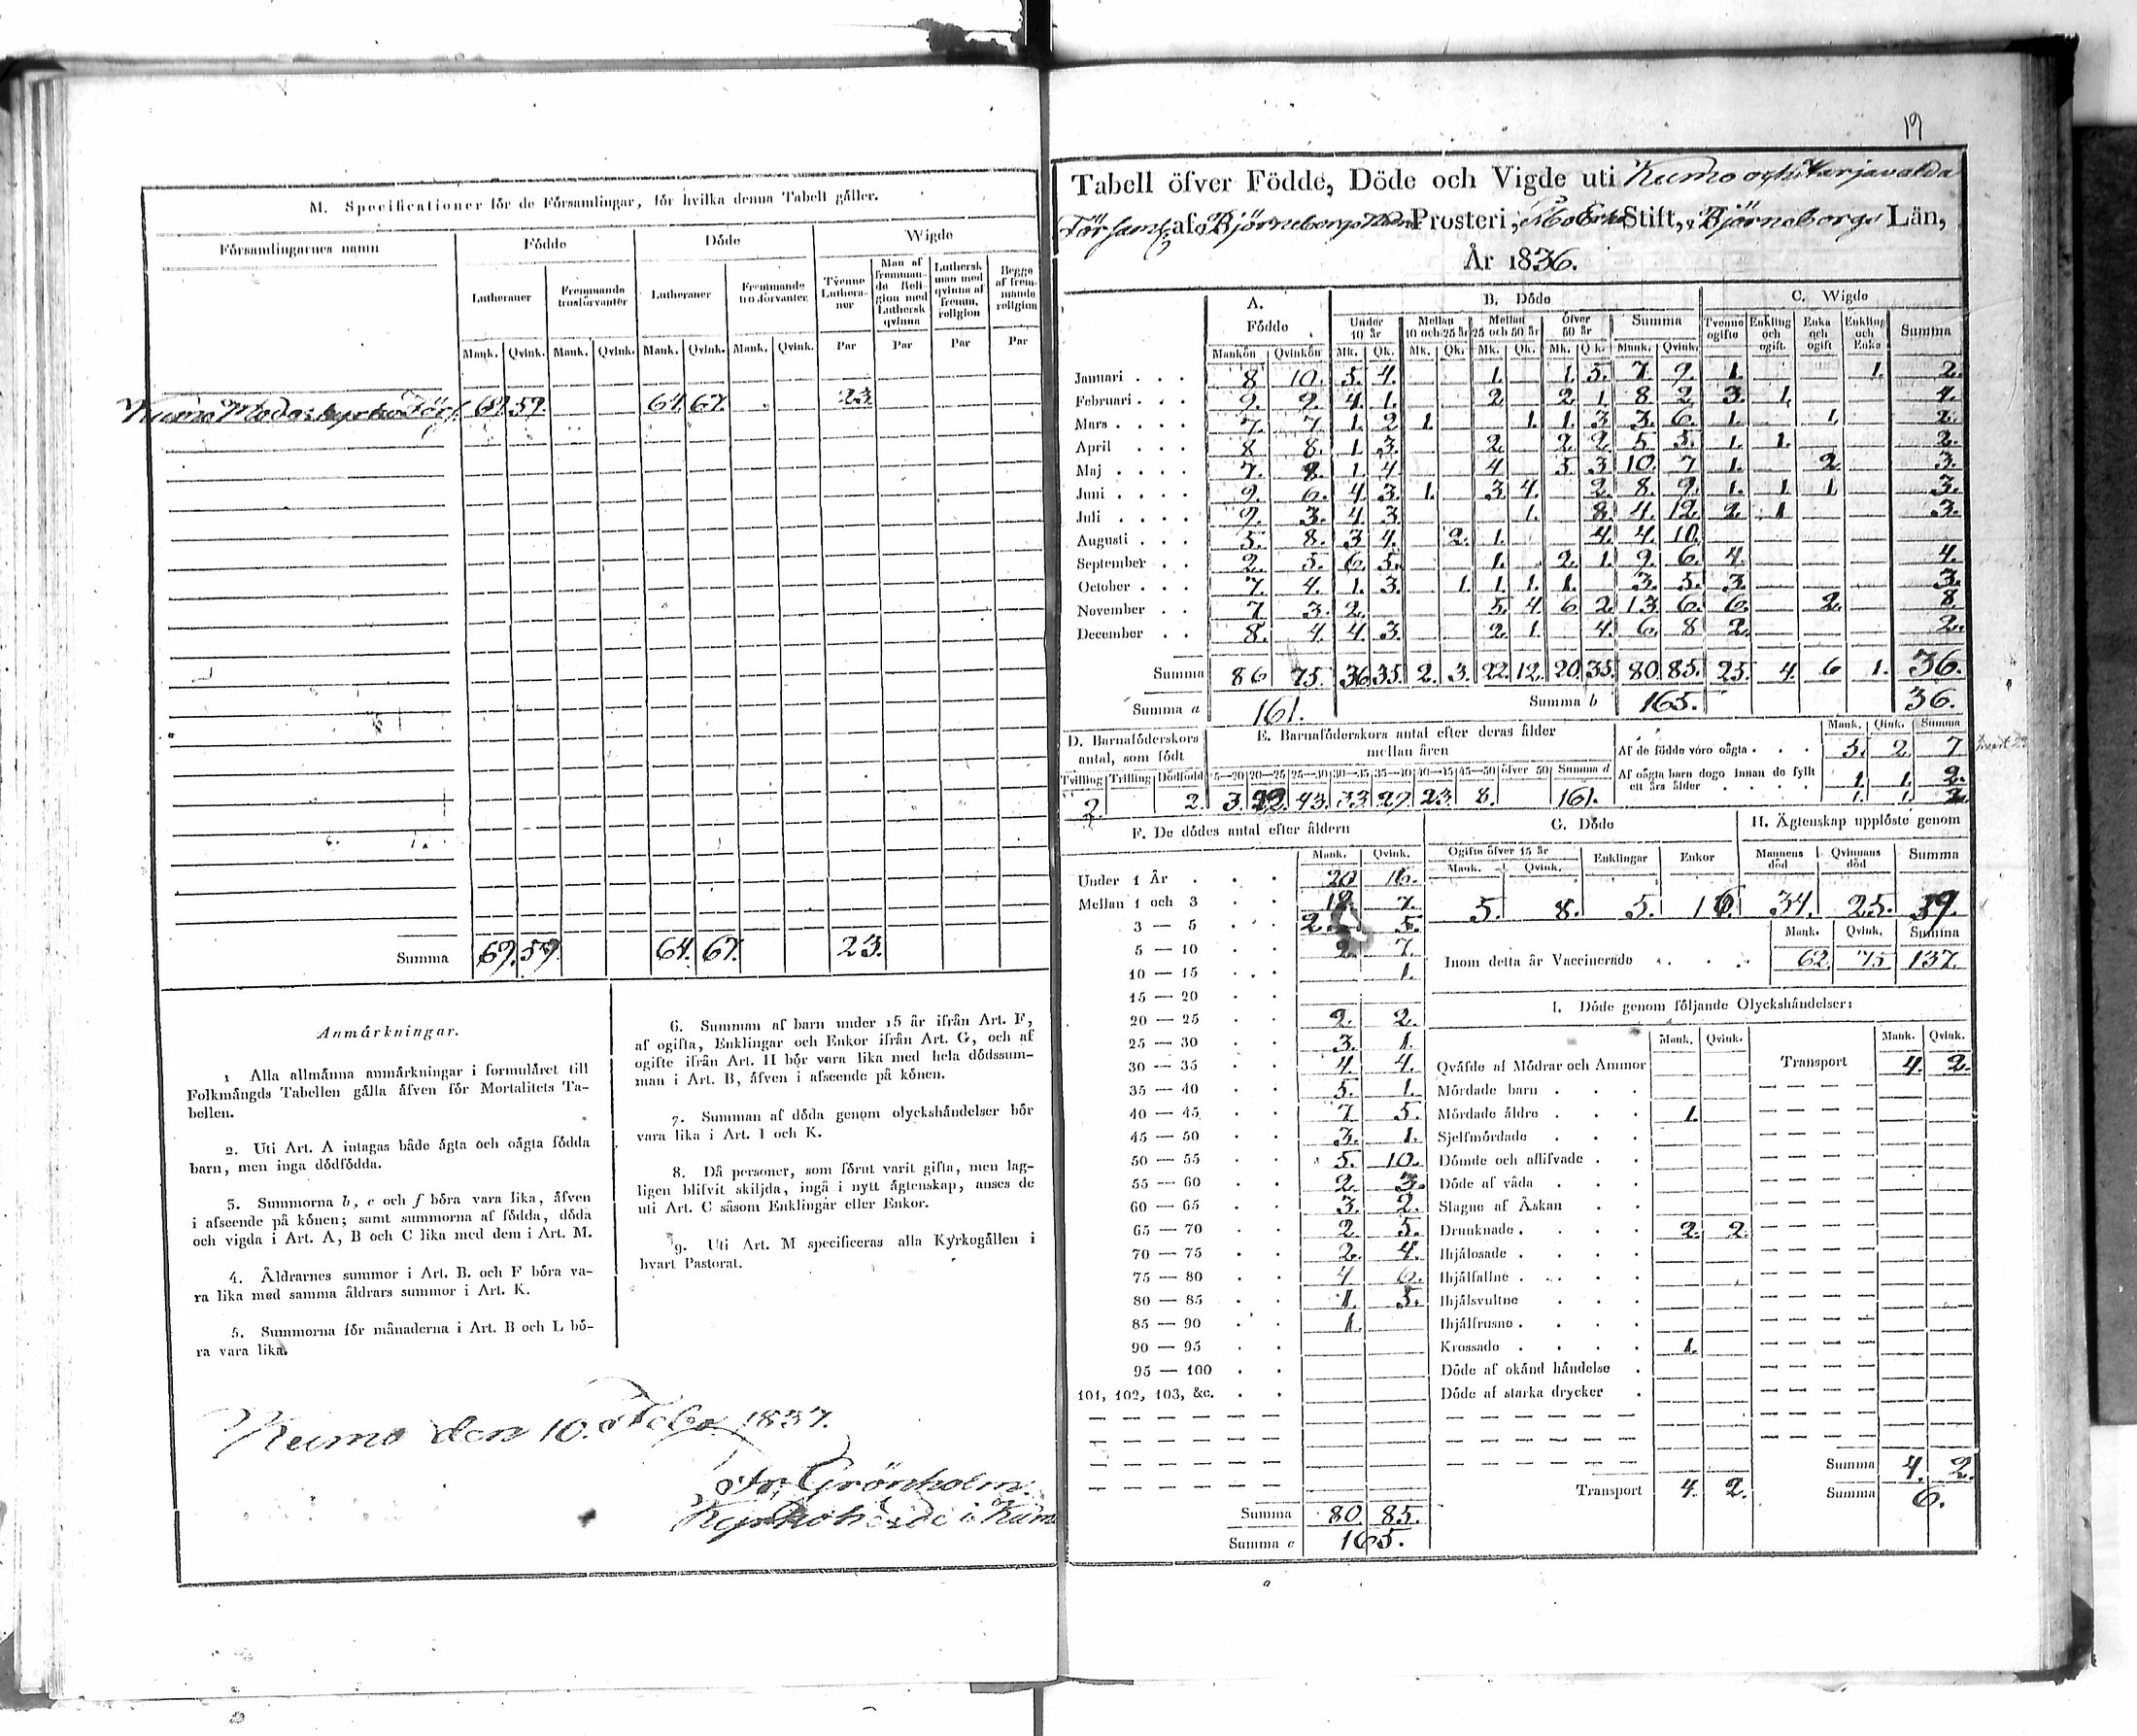 M. Specificationer för de Församlingar, för hvilka denna Tabell gäller.
Församlingarnes namn Födde Döde Wigde
Lutheraner Fremmande trosförvanter Lutheraner Fremmande trosförvanter Tvenne Lutheraner Man af fremmande Religion med Luthersk qvinna Luthersk man med qvinna af fremm. religion Begge af fremmande religion
Mank. Qvink. Mank. Qvink. Mank. Qvink. Mank. Qvink. Par Par Par Par
Kumo Moderkyrko Förs. 69. 59. 64. 67. 23
Summa 69. 59. 64. 67. 23.
Anmärkningar.
1 Alla allmänna anmärkningar i formuläret till
Folkmängds Tabellen gälla äfven för Mortalitets Ta-
bellen.
2. Uti Art. A intagas både ägta och oägta födda
barn, men inga dödfödda.
3. Summorna b, e och f böra vara lika, äfven
i afseende på könen; samt summorna af födda, döda
och vigda i Art. A, B och C lika med dem i Art. M.
4. Åldrarnes summor i Art. B. och F böra va-
ra lika med samma åldrars summor i Art. K.
5. Summorna för månaderna i Art. B och L bö-
ra vara lika.
6. Summan af barn under 15 år ifrån Art. F,
af ogifta, Enklingar och Enkor ifrån Art. G, och af
ogifte ifrån Art. H bör vara lika med hela dödssum-
man i Art. B, äfven i afseende på könen.
7. Summan af döda genom olyckshändelser bör
vara lika i Art. I och K.
8. Då personer, som förut varit gifta, men lag-
ligen blifvit skiljda, ingå i nytt ägtenskap, anses de
uti Art. C såsom Enklingar eller Enkor.
9. Uti Art. M specificeras alla Kyrkogällen i
hvart Pastorat.
Kumo den 10. Febr. 1837.
Fr. Grönholm.
Kyrkoherde i Kumo
19
Tabell öfver Födde, Döde och Vigde uti Kumo och Harjavalda
Församl. af Björneborgs Prosteri, Åbo Erke Stift, Björneborgs Län,
År 1836.
A. Födde B. Döde C. Wigde
Under 10 år Mellan 10 och 25 år Mellan 25 och 50 år Öfver 50 år Summa Tvenne ogifte Enkling och ogift. Enka och ogift Enkling och Enka Summa
Mankön Qvinkön Mk. Qk. Mk. Qk. Mk. Qk. Mk. Qk. Mank. Qvink.
Januari 8 10. 5. 4. 1. 1. 5. 7. 9. 1. 1. 2.
Februari 9. 9. 4. 1. 2 2 1 8 2 3. 1. 4.
Mars 7. 7 1. 2 1. 1. 1. 3 3. 6. 1. 1. 2.
April 8 8. 1. 3. 2. 2 2 5 5. 1. 1. 2.
Maj 7. 8. 1. 4. 4 5 3 10. 7 1. 2 3.
Juni 9. 6. 4. 3. 1. 3 4. 2. 8. 9. 1. 1. 1. 3.
Juli 9. 3. 4. 3 1. 8. 4. 12. 2. 1 3.
Augusti 5. 8. 3 4. 2. 1. 4. 4. 10.
September 2. 5. 6. 5. 1. 2. 1. 9. 6. 4. 4.
October 7. 4. 1. 3. 1. 1. 1. 1. 3. 5. 3. 3.
November 7. 3. 2. 5. 4 6 2. 13. 6. 6. 2. 8.
December 8. 4. 4. 3. 2. 1. 4. 6. 8 2. 2.
Summa 86 75. 36. 35. 2. 3. 22. 12. 20. 35. 80. 85. 25. 4. 6 1. 36.
Summa a 161. Summa b 165. 36.
D. Barnaföderskors antal, som födt
Tvilling Trilling Dödfödd
2. 2.
E. Barnaföderskors antal efter deras ålder mellan åren
15—20 20—25 25—30 30—35 35—40 40—45 45—50 öfver 50 Summa d
3. 22. 43. 33. 27. 23. 8. 161.
Mank. Qink. Summa
Af de födde vöro oägta 5. 2. 7
Af oägta barn dogo innan de fyllt ett års ålder 1. 1. 2.
1. 1. 2.
F. De dödes antal efter åldern
Mank. Qvink.
Under 1 År 20 16.
Mellan 1 och 3 12. 7.
3 — 5 2 5.
5 — 10 2. 7.
10 — 15 1.
15 — 20
20 — 25 2. 2.
25 — 30 3. 1.
30 — 35 4. 4.
35 — 40 5. 1.
40 — 45 7 5.
45 — 50 3. 1.
50 — 55 5. 10.
55 — 60 2. 3.
60 — 65 3. 2.
65 — 70 2 5.
70 — 75 2. 4.
75 — 80 4 6.
80 — 85 1. 5.
85 — 90 1.
90 — 95
95 — 100
101, 102, 103, &c.
Summa 80. 85.
Summa e 165.
G. Döde
Ogifte öfver 15 år Enklingar Enkor
Mank. Qvink.
5. 8. 5. 16.
H. Ägtenskap upplöste genom
Mannens död Qvinnans död Summa
34. 25. 39.
Mank. Qvink. Summa
Inom detta år Vaccinerade 62. 75 137.
I. Döde genom följande Olyckshändelser:
Mank. Qvink. Mank. Qvink.
Qväfde af Mödrar och Ammor Transport 4. 2.
Mördade barn
Mördade äldre 1.
Sjelfmördade
Dömde och aflifvade
Döde af våda
Slagne af Åskan
Drunknade 2. 2.
Ihjälosade
Ihjälfallne
Ihjälsvultne
Ihjälfrusne
Krossade 1.
Döde af okänd händelse
Döde af starka drycker
Summa 4. 2.
Transport 4. 2. Summa 6.